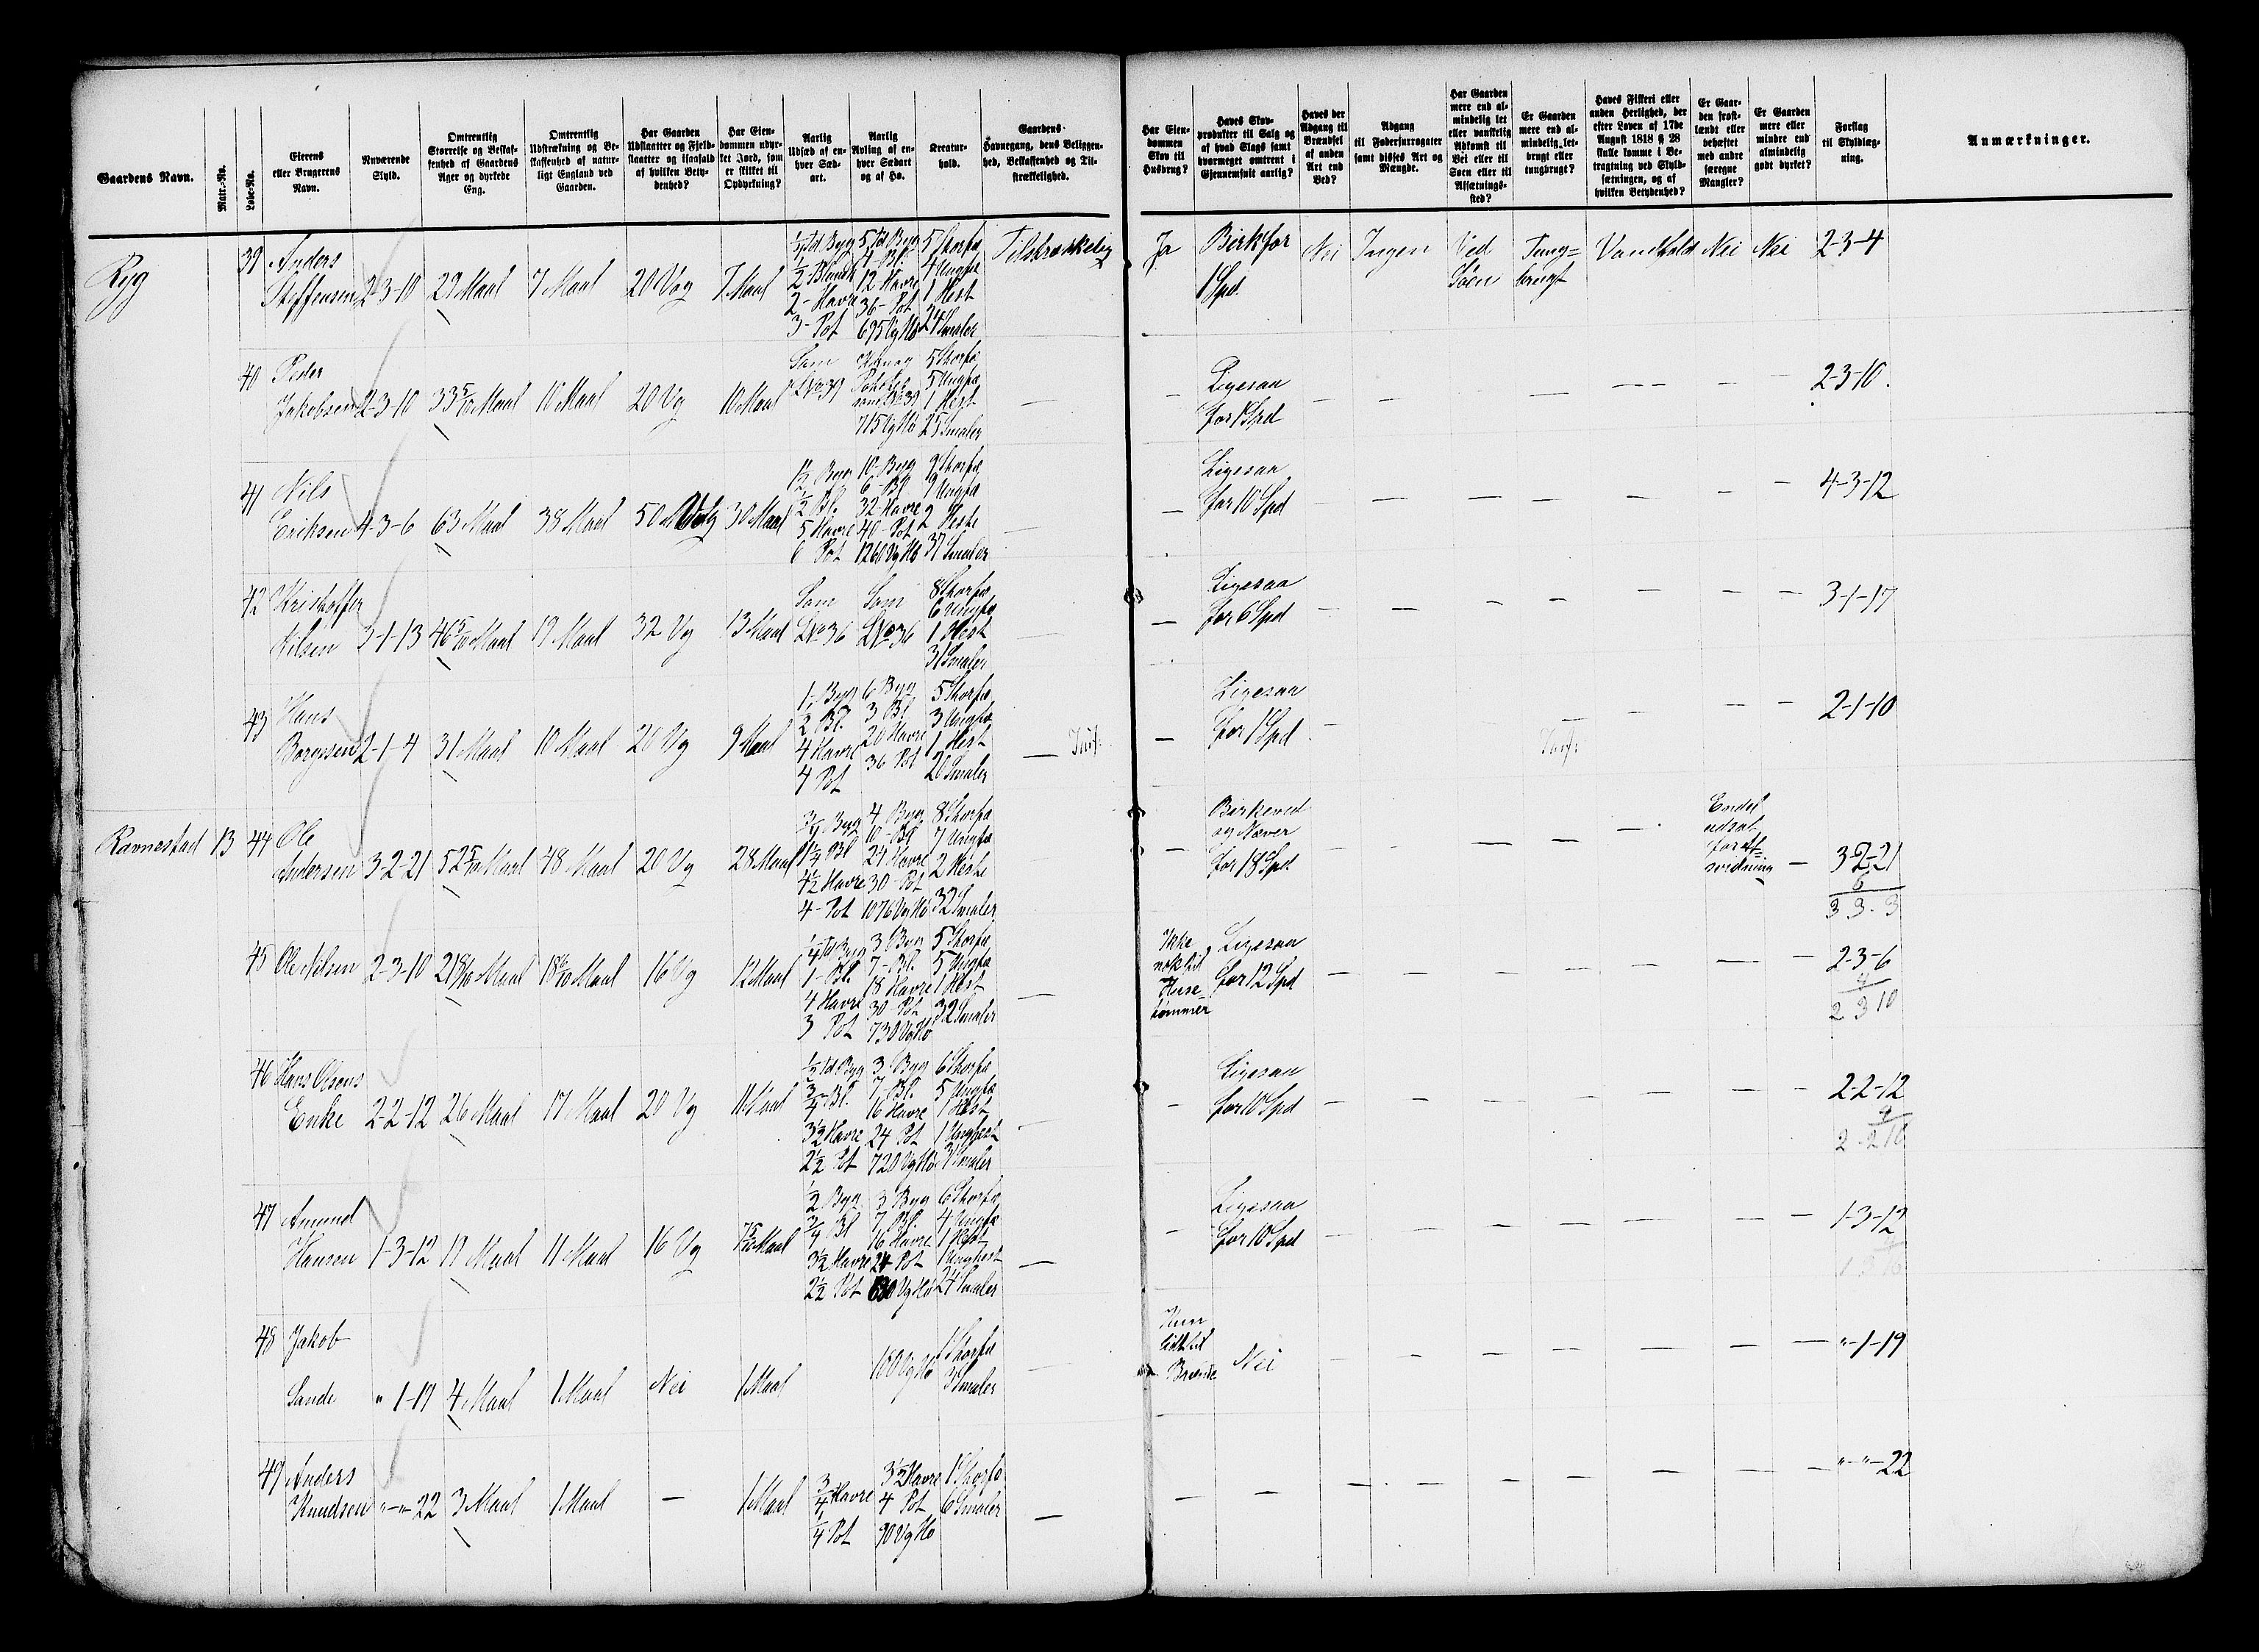 Gaardens Navn.
Matr.-No.
Løbe-No.
Eierens eller Brugerens Navn.
Nuværende Skyld.
Omtrentlig Størrelse og Beskaffenhed af Gaardens Ager og dyrkede Eng.
Omtrentlig Udstrækning og Beskaffenhed af naturligt England ved Gaarden.
Har Gaarden Udslaatter og Fjeldslaatter og isaafald af hvilken Betydenhed?
Har Eiendommen udyrket Jord, som er skikket til Opdyrkning?
Aarlig Udsæd af enhver Sædart.
Aarlig Avling af enhver Sædart og af Hø.
Kreaturhold.
Gaardens Havnegang, dens Beliggenhed, Beskaffenhed og Tilstrækkelighed.
Har Eiendommen Skov til Husbrug?
Haves Skovprodukter til Salg og af hvad Slags samt hvormeget omtrent i Gjennemsnit aarlig?
Haves der Adgang til Brændsel af anden Art end Ved?
Adgang til Fødersurrogater samt disses Art og Mængde.
Har Gaarden mere end almindelig let eller vanskelig Adkomst til Vei eller til Søen eller til Afsætningssted?
Er Gaarden mere end almindelig letbrugt eller tungbrugt?
Haves Fiskeri eller anden Herlighed, der efter Loven af 17de August 1818 § 28 skulle komme i Betragtning ved Skyldsætningen, og af hvilken Betydenhed?
Er Gaarden frostlændt eller behæftet med andre særegne Mangler?
Er Gaarden mere eller mindre end almindelig godt dyrket?
Forslag til Skyldlægning.
Anmærkninger.
Ryg
39 Anders Steffensen 2-3-10 29 Maal 7 Maal 20 Vog 7 Maal
1/2 Td. Byg 1/2 - Blandk 2 - Havre 3 - Pot
5 Td Byg 4 - Bl. 12 Havre 36 - Pot 695 Vg Hø
5 Storfæ 4 Ungfæ 1 Hest 24 Smaler
Tilstrækkelig
Ja Birk for 1 Spd. Nei Ingen Ved Søen Tungbrugt Vandfald Nei Nei 2-3-4
40 Peder Jakobsen 2-3-10 33 5/10 Maal 10 Maal 20 Vg 10 Maal
Som LNo 39
715 Vg Hø
5 Storfæ 5 Ungfæ 1 Hest 25 Smaler
—
— Ligesaa for 1 Spd — — — — — — — 2-3-10.
41 Nils Eriksen 4-3-6 63 Maal 38 Maal 50 Vog 30 Maal
1 1/2 Byg 1/2 Bl. 5 Havre 6 Pot
10 - Byg 6 - Bl 32 Havre 40 - Pot 1260 Vg Hø
9 Storfæ 9 Ungfæ 2 Heste 37 Smaler
—
— Ligesaa for 10 Spd — — — — — — — 4-3-12
42 Kristoffer Nilsen 3-1-13 46 5/10 Maal 19 Maal 32 Vg 13 Maal
Som LNo 36
Som LNo 36
8 Storfæ 6 Ungfæ 1 Hest 31 Smaler
—
— Ligesaa for 6 Spd — — — — — — — 3-1-17
43 Hans Børgesen 2-1-4 31 Maal 10 Maal 20 Vg 9 Maal
1, Byg 2 Bl. 4 Havre 4 Pot
6 Byg 3 Bl 20 Havre 36 Pot
5 Storfæ 3 Ungfæ 1 Hest 20 Smaler
—
— Ligesaa for 1 Spd. — — — — — 2-1-10
Ravnestad 13 44 Ole Andersen 3-2-21 52 5/10 Maal 48 Maal 20 Vg 28 Maal
3/4 Byg 1 1/4 Bl 4 1/2 Havre 4 - Pot
4 Byg 10 - Bl 24 Havre 30 - Pot 1076 Vg Hø
8 Storfæ 7 Ungfæ 2 Heste 32 Smaler
— Birkeved og Næver for 18 Spd. — — — — — Endel udsat for — 3-2-21
6
3 3. 3
45 Ole Nilsen 2-3-10 21 8/10 Maal 18 6/10 Maal 16 Vg 12 Maal
1/4 Td Byg 1 - Bl. 4 Havre 3 Pot
3 Byg 7 - Bl. 18 Havre 30 Pot 730 Vg Hø
5 Storfæ 5 Ungfæ 1 Hest 32 Smaler
—
Ikke nok til Husetømmer Ligesaa for 12 Spd — — — — — — — 2-3-6
4
2 3 10
46 Hans Olsens Enke 2-2-12 26 Maal 17 Maal 20 Vg 11 Maal
1/2 Td Byg 3/4 Bl. 3 1/2 Havre 2 1/2 Pot
3 Byg 7 - Bl. 16 Havre 24 Pot 720 Vg Hø
6 Storfæ 5 Ungfæ 1 Hest 1 Unghest 31 Smaler
—
— Ligesaa for 10 Spd — — — — — — — 2-2-12
4
2-2 16
47 Amund Hansen 1-3-12 19 Maal 11 Maal 16 Vg 7 5/10 Maal
1/2 Byg 3/4 Bl 3 1/2 Havre 2 1/2 Pot
3 Byg 7, Bl. 16 Havre 24 Pot 680 Vg Hø
6 Storfæ 4 Ungfæ 1 Hest 1 Unghest 24 Smaler
—
— Ligesaa for 10 Spd — — — — — — — 1-3-12
4
1 3 16
48 Jakob Sande " 1-19 4 Maal 1 Maal Nei 1 Maal
100 Vg Hø
1 Storfæ 3 Smaler
—
Kun lidt til Brænde Nei — — — — — — — "-1-19
49 Anders Knudsen "-"-22 3 Maal 1 Maal — 1 Maal
3/4 Havre 1/4 Pot
3 1/2 Havre 4 Pot 90 Vg Hø
1 Storfæ 6 Smaler
—
— — — — — — — — — "-"-22